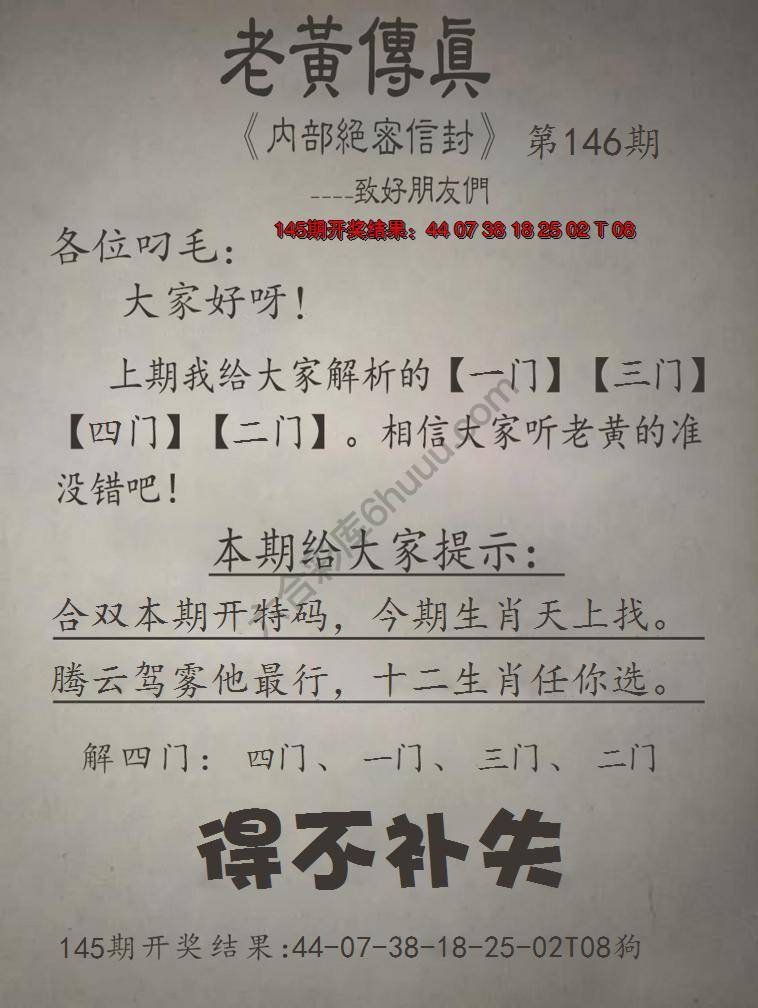 老黃傳眞
《内部絕密信封》 第146期
----致好朋友們
145期开奖结果：44 07 38 18 25 02 T 08
各位叼毛：
大家好呀！
上期我给大家解析的【一门】【三门】
【四门】【二门】。相信大家听老黄的准
没错吧！
六合彩库6huuu.com
本期给大家提示：
合双本期开特码，今期生肖天上找。
腾云驾雾他最行，十二生肖任你选。
解四门： 四门、 一门、 三门、 二门
得不补失
145期开奖结果:44-07-38-18-25-02T08狗